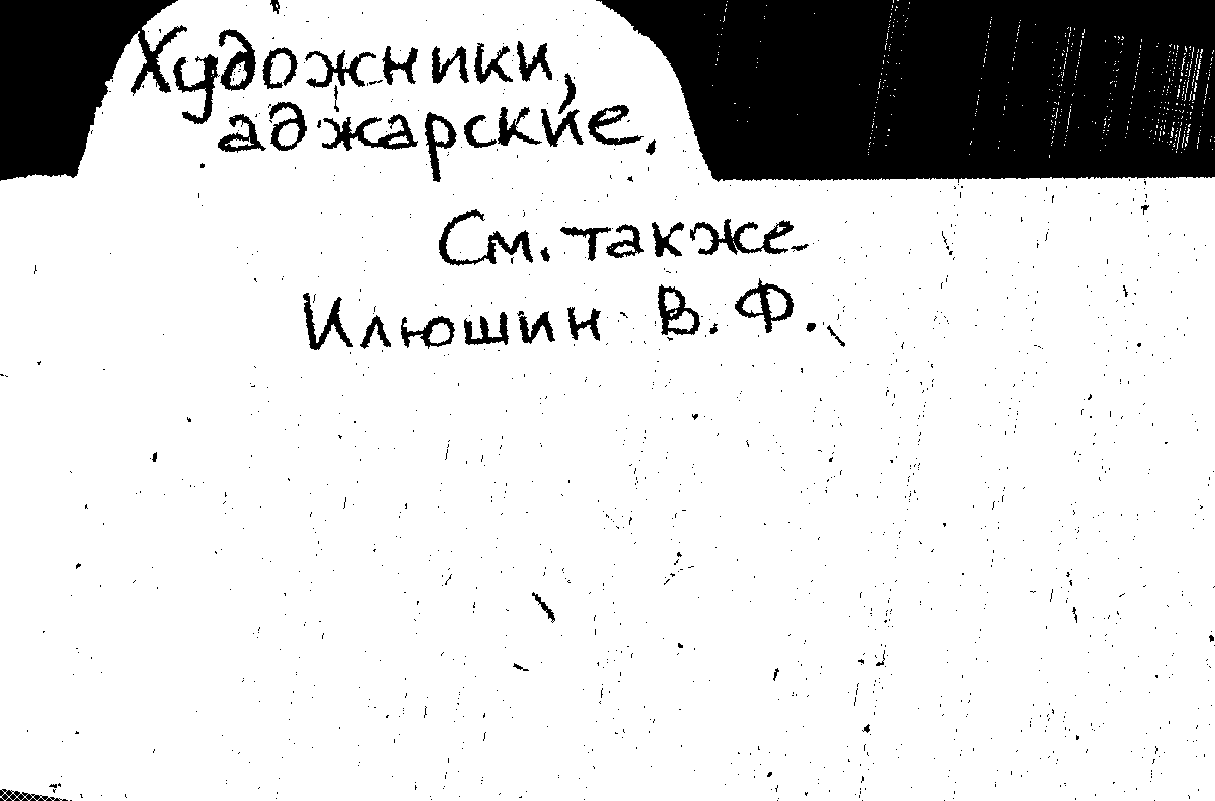 Художники,
аджарские.
См. также
Илюшин В. Ф.